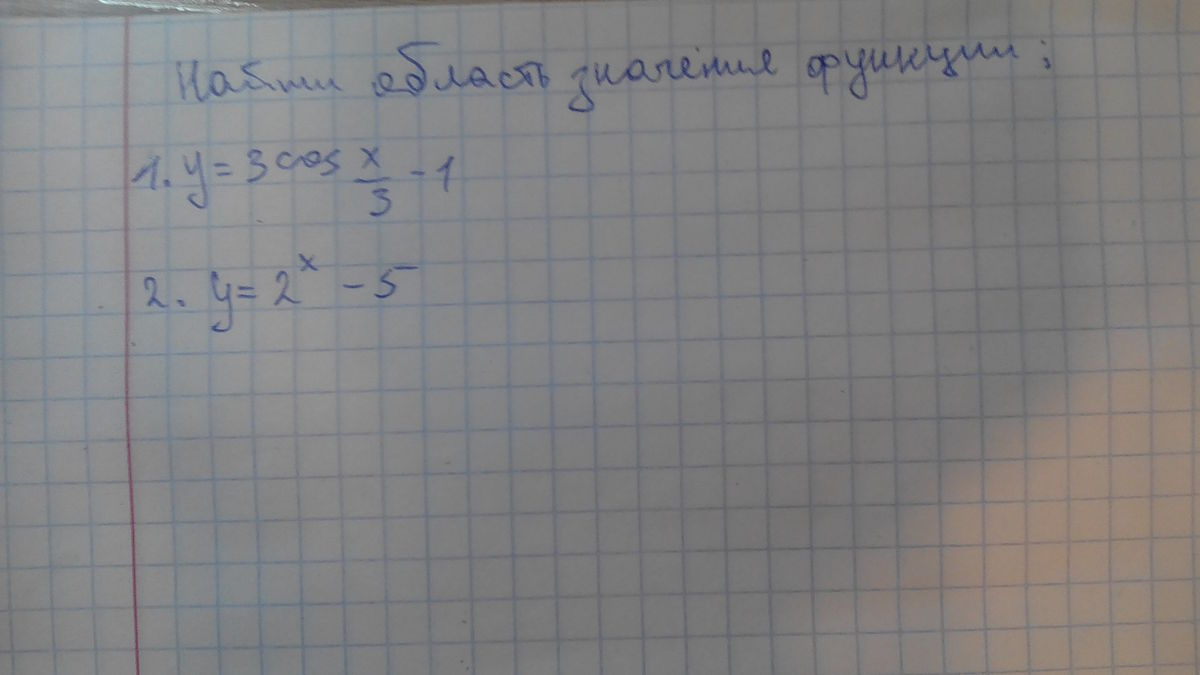 Найти область значения функции:
1. y = 3 cos x/3 - 1
2. y = 2^x - 5